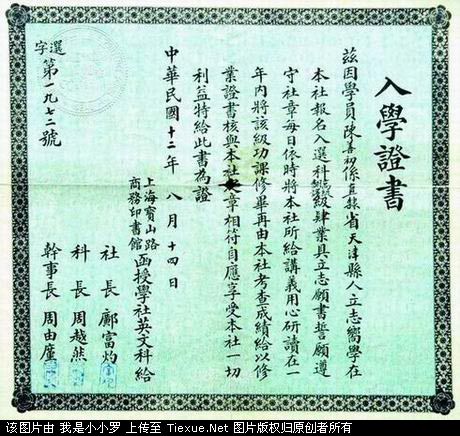 入學證書
茲因學員陳善初係直隸省天津縣人立志嚮學在
本社報名入選科級肄業具立志願書誓願遵
守社章每日依時將本社所給講義用心研讀在一
年內將該級功課修畢再由本社考查成績給以修
業證書核與本社章相符自應享受本社一切
利益特給此書為證
中華民國十二年八月十四日
上海寶山路
商務印書館
函授學社英文科給
社長 鄺富灼
科長 周越然
幹事長 周由廑
選字
第一九七二號
该图片由 我是小小罗 上传至 Tiexue.Net 图片版权归原创者所有